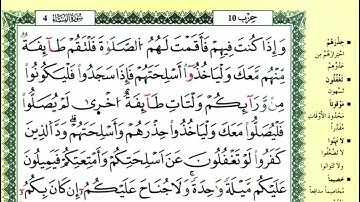 4 سُورَةُ النِّسَاء حِزْب 10
وَإِذَا كُنتَ فِيهِمْ فَأَقَمْتَ لَهُمُ الصَّلَوٰةَ فَلْتَقُمْ طَآئِفَةٌ
مِّنْهُم مَّعَكَ وَلْيَأْخُذُوٓا أَسْلِحَتَهُمْ فَإِذَا سَجَدُوا فَلْيَكُونُوا
مِن وَرَآئِكُمْ وَلْتَأْتِ طَآئِفَةٌ أُخْرَىٰ لَمْ يُصَلُّوا
فَلْيُصَلُّوا مَعَكَ وَلْيَأْخُذُوا حِذْرَهُمْ وَأَسْلِحَتَهُمْ وَدَّ الَّذِينَ
كَفَرُوا لَوْ تَغْفُلُونَ عَنْ أَسْلِحَتِكُمْ وَأَمْتِعَتِكُمْ فَيَمِيلُونَ
عَلَيْكُم مَّيْلَةً وَٰحِدَةً وَلَا جُنَاحَ عَلَيْكُمْ إِن كَانَ بِكُمْ
حِذْرَهُمْ
احْتِرَازَهُمْ مِنْ
عَدُوِّهِمْ
تَغْفُلُونَ
تَسْهُونَ
مَوْقُوتًا
مَحْدُودَ الأَوْقَاتِ
لَا تَهِنُوا
لَا تَضْعُفُوا
خَصِيمًا
مُخَاصِمًا مُدَافِعًا